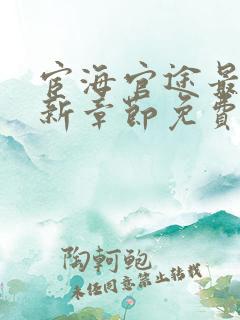 宦海官途最
新章節免費
陶軻鲍
未任同意禁止转载